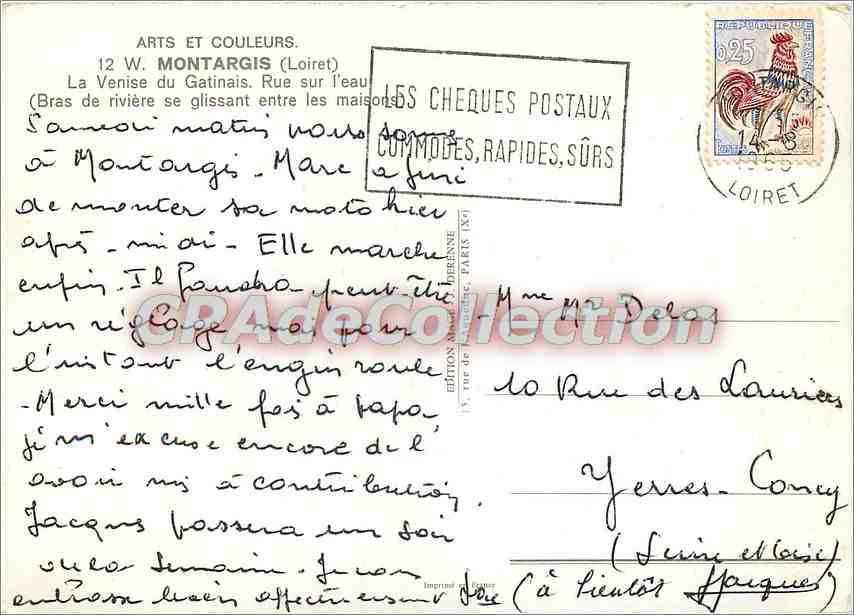 ARTS ET COULEURS.
12 W. MONTARGIS (Loiret)
La Venise du Gatinais. Rue sur l'eau
(Bras de rivière se glissant entre les maisons)
LES CHEQUES POSTAUX
COMMODES, RAPIDES, SÛRS
REPUBLIQUE FRANÇAISE
0,25
POSTES
14-8
LOIRET
Samedi matin nous sommes
à Montargis - Marc a fini
de monter sa moto hier
après-midi - Elle marche
enfin. Il faudra peut-être
un réglage mais pour
l'instant l'engin roule
- Merci mille fois à papa
je m'excuse encore de l'
avoir mis à contribution.
Jacques passera un soir
de la semaine. Je vous
embrasse bien affectueusement
(à bientôt Jacques)
EDITION DERENNE
PARIS (Xe)
CPAdeCollection
Mme Mr Delas
10 Rue des Lauriers
Yerres-Concy
(Seine et Oise)
Imprimé en France